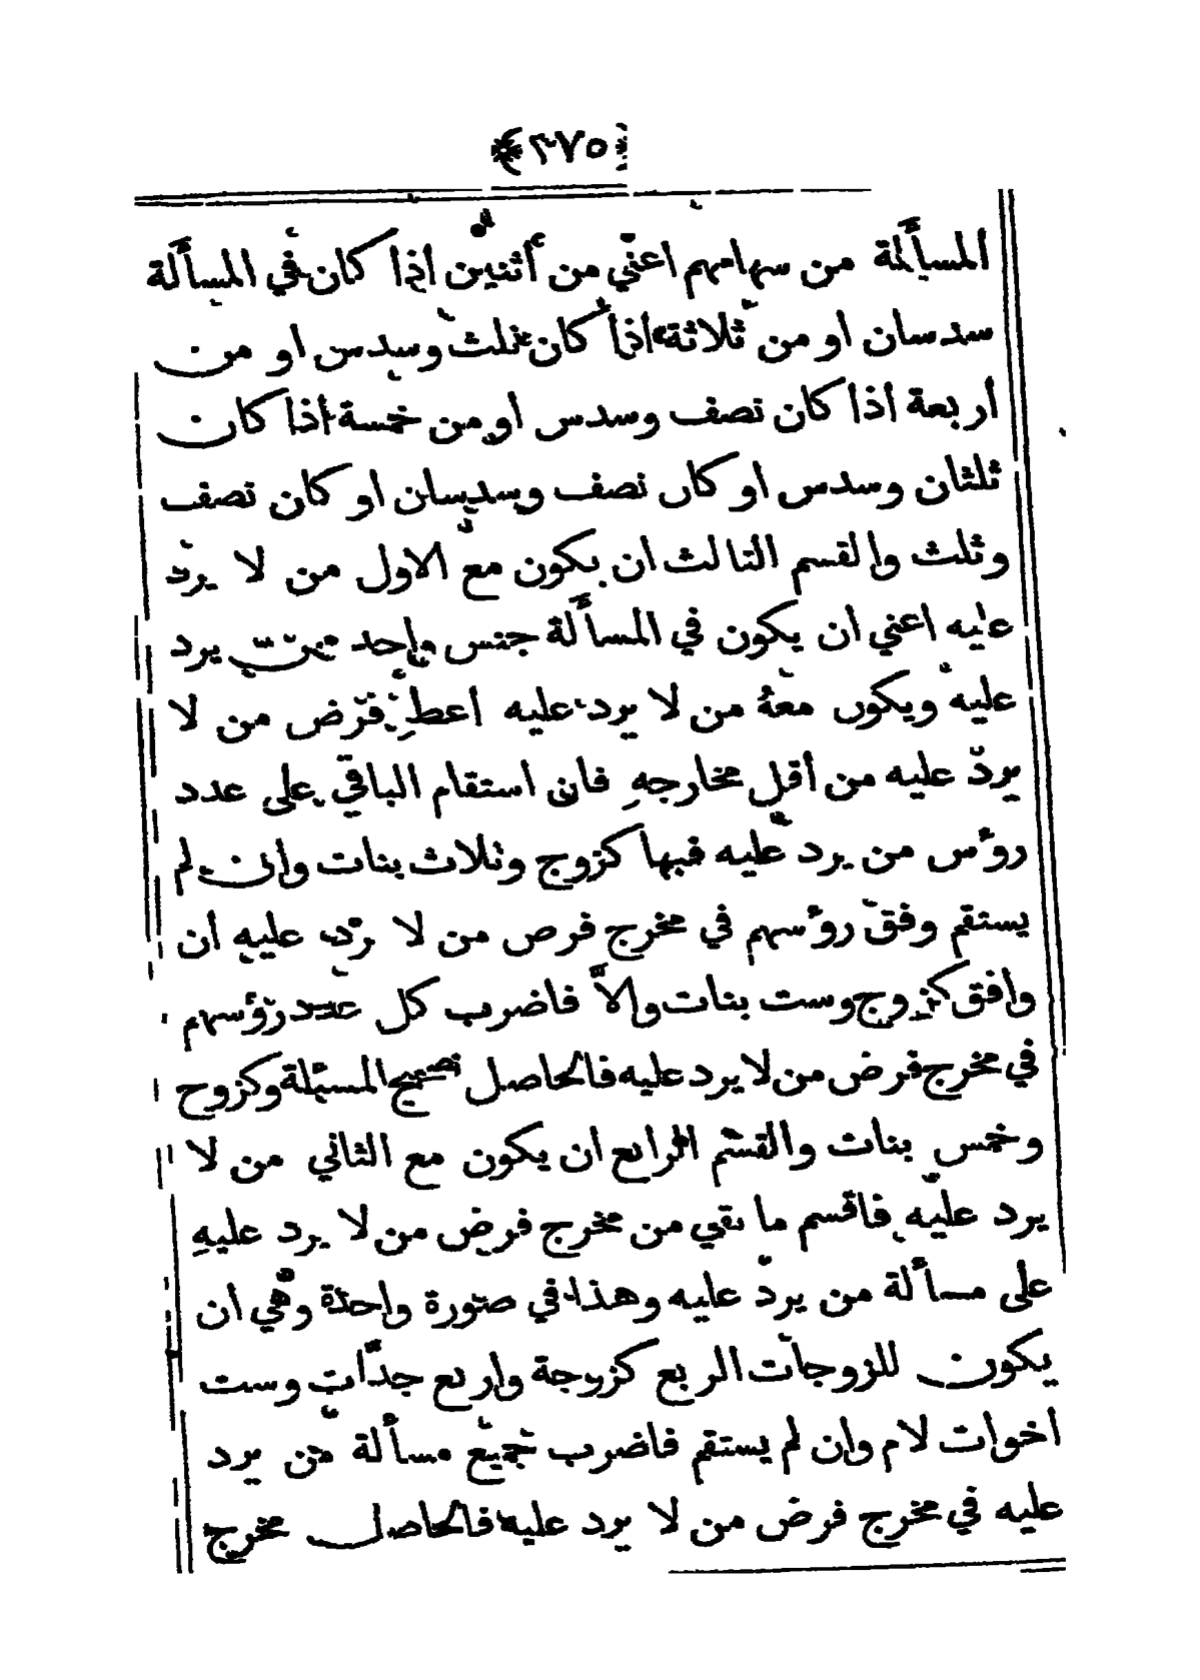 ﴿٣٧٥﴾
المسألة من سهامهم اعني من أثنين اذا كان في المسألة
سدسان او من ثلاثة اذا كان ثلث وسدس او من
أربعة أذا كان نصف وسدس أو من خمسة أذا كان
ثلثان وسدس او كان نصف وسدسان او كان نصف
وثلث والقسم الثالث ان يكون مع الاول من لا يردّ
عليه اعني ان يكون في المسألة جنس واحد ممن يرد
عليه ويكون معهُ من لا يرد عليه أعطِ فرض من لا
يردّ عليه من أقل مخارجهِ فان أستقام الباقي على عدد
روؤس من يرد عليه فبها كزوج وثلاث بنات وان لم
يستقم وفق روؤسهم في مخرج فرض من لا يرد عليه أن
وافق كزوج وست بنات والاّ فاضرب كل عدد رؤسهم
في مخرج فرض من لا يرد عليه فالحاصل تصحيح المسئلة وكزوج
وخمس بنات والقسم الرابع ان يكون مع الثاني من لا
يرد عليه فاقسم ما بقي من مخرج فرض من لا يرد عليهِ
على مسألة من يردّ عليه وهذا في صورة واحدة وهي ان
يكون للزوجات الربع كزوجة واربع جدّات وست
اخوات لام وان لم يستقم فاضرب جميع مسألة من يرد
عليه في مخرج فرض من لا يرد عليه فالحاصل مخرج